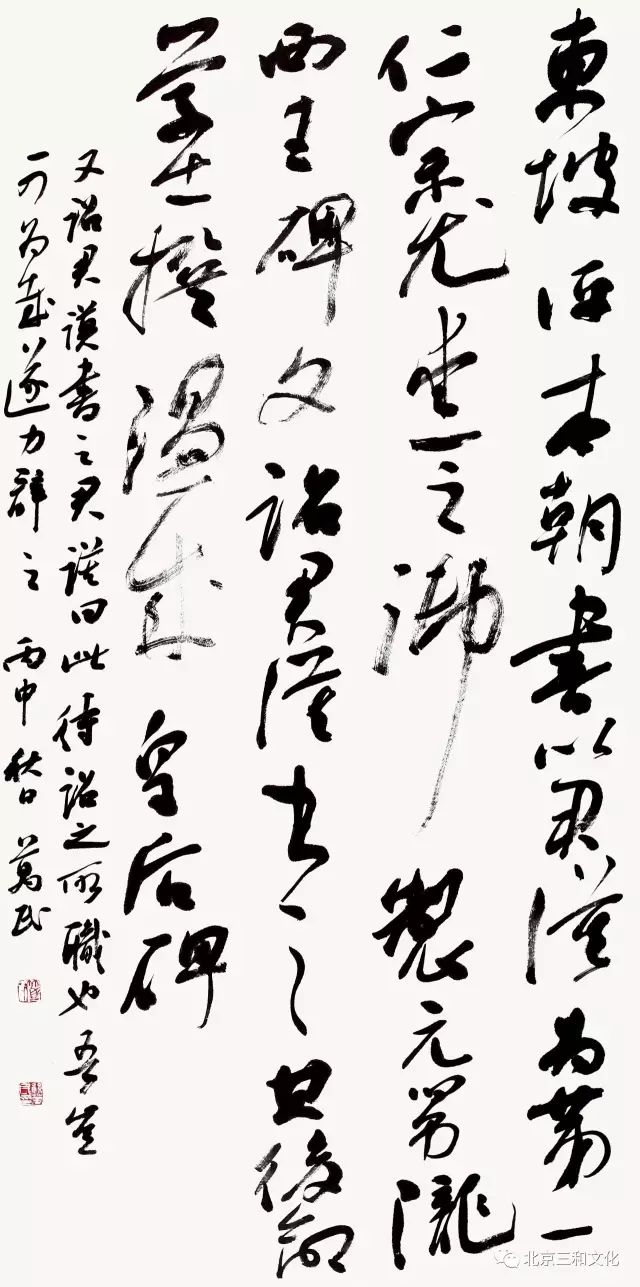 東坡評本朝書以君謨為第一
仁宗尤愛之御製元舅隴
西王碑文詔君謨書之其後命
學士撰溫成皇后碑
又詔君謨書之君謨曰此待詔之所職也吾豈
可為哉遂力辭之 丙申秋日 萬民
北京三和文化